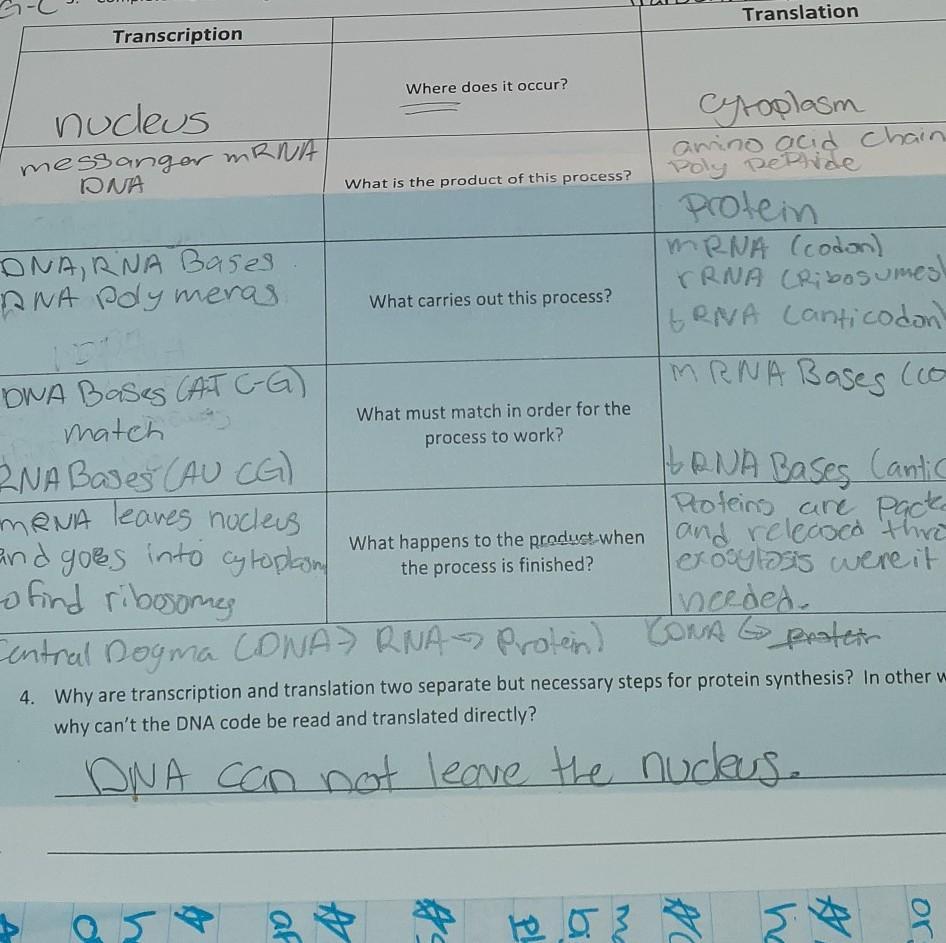 G-C
Transcription
Translation
nucleus
Where does it occur?
Cytoplasm
messanger mRNA
DNA
What is the product of this process?
amino acid Chain
Poly PePhide
Protein
DNA, RNA Bases
RNA Polymeras
What carries out this process?
mRNA (codon)
rRNA (Ribosumes)
tRNA (anticodon)
DNA Bases (AT C-G)
match
RNA Bases (AU CG)
What must match in order for the
process to work?
mRNA Bases (co
tRNA Bases (antic
mRNA leaves nucleus
and goes into cytoplasm
o find ribosomes
What happens to the product when
the process is finished?
Proteins are pack
and released thro
exocytosis were it
needed.
entral Dogma (DNA → RNA → Protein)
4. Why are transcription and translation two separate but necessary steps for protein synthesis? In other w
why can't the DNA code be read and translated directly?
DNA can not leave the nucleus.